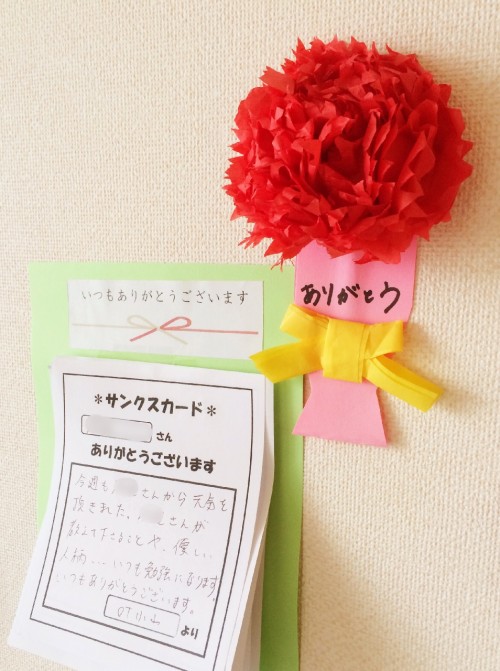 ありがとう
いつもありがとうございます
*サンクスカード*
さん
ありがとうございます
今週も さんから元気を
頂きました。 さんが
教えて下さることや、優しい
人柄…いつも勉強になります。
いつもありがとうございます。
OT小山
より